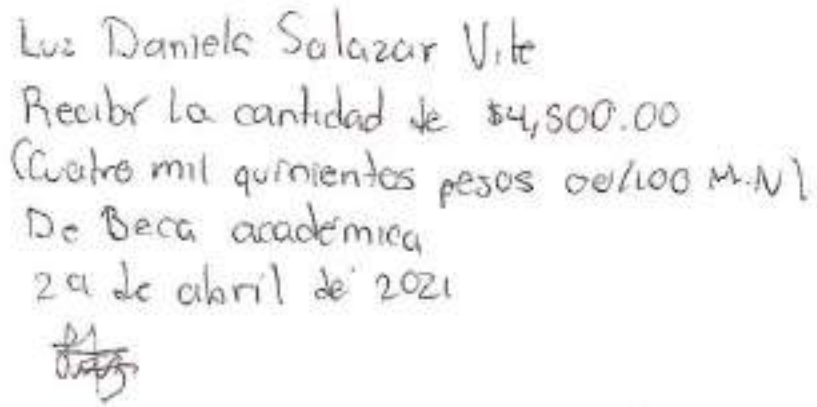 Luz Daniela Salazar Vite
Recibí la cantidad de $4,500.00
(Cuatro mil quinientos pesos 00/100 M.N)
De Beca académica
29 de abril de 2021